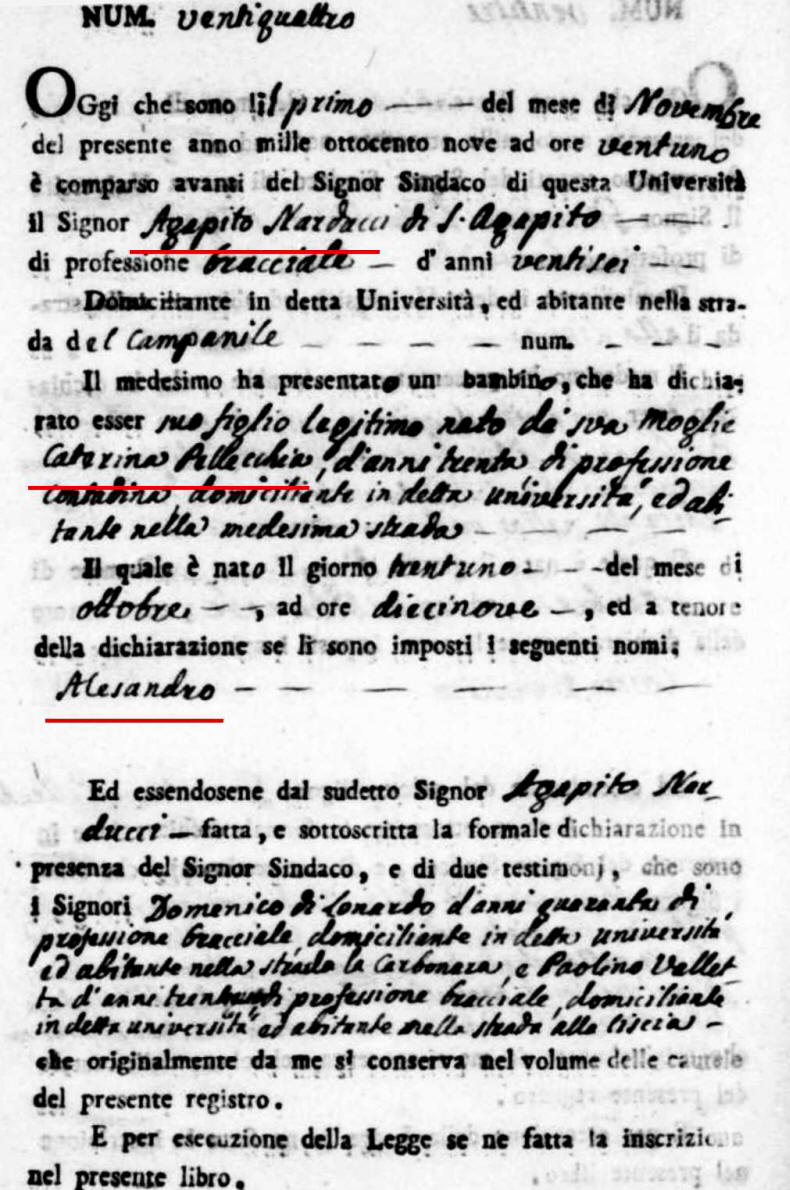 NUM. ventiquattro
OGgi che sono lì il primo — — del mese di Novembre
del presente anno mille ottocento nove ad ore ventuno
è comparso avanti del Signor Sindaco di questa Università
il Signor Agapito Narducci di S. Agapito —
di professione bracciale — d' anni ventisei — —
Domiciliante in detta Università, ed abitante nella stra-
da del Campanile — — — — — num. — — —
Il medesimo ha presentato un bambino, che ha dichia-
rato esser suo figlio legitimo nato da sua Moglie
Caterina Pellecchia, d'anni trenta di professione
contadina, domiciliante in detta università, ed abi
tante nella medesima strada — — — —
Il quale è nato il giorno trentuno — — del mese di
ottobre, — —, ad ore diecinove —, ed a tenore
della dichiarazione se li sono imposti i seguenti nomi;
Alesandro — — — — — — —
Ed essendosene dal sudetto Signor Agapito Nar_
ducci — fatta, e sottoscritta la formale dichiarazione in
presenza del Signor Sindaco, e di due testimonj, che sono
i Signori Domenico di Lonardo d'anni quaranta di
professione bracciale, domiciliante in detta università
ed abitante nella strada la Carbonara, e Paolino Vallet
ta d'anni di professione bracciale, domiciliante
in detta università ed abitante nella strada alla liscia —
che originalmente da me si conserva nel volume delle cautele
del presente registro.
E per esecuzione della Legge se ne fatta la inscrizione
nel presente libro.